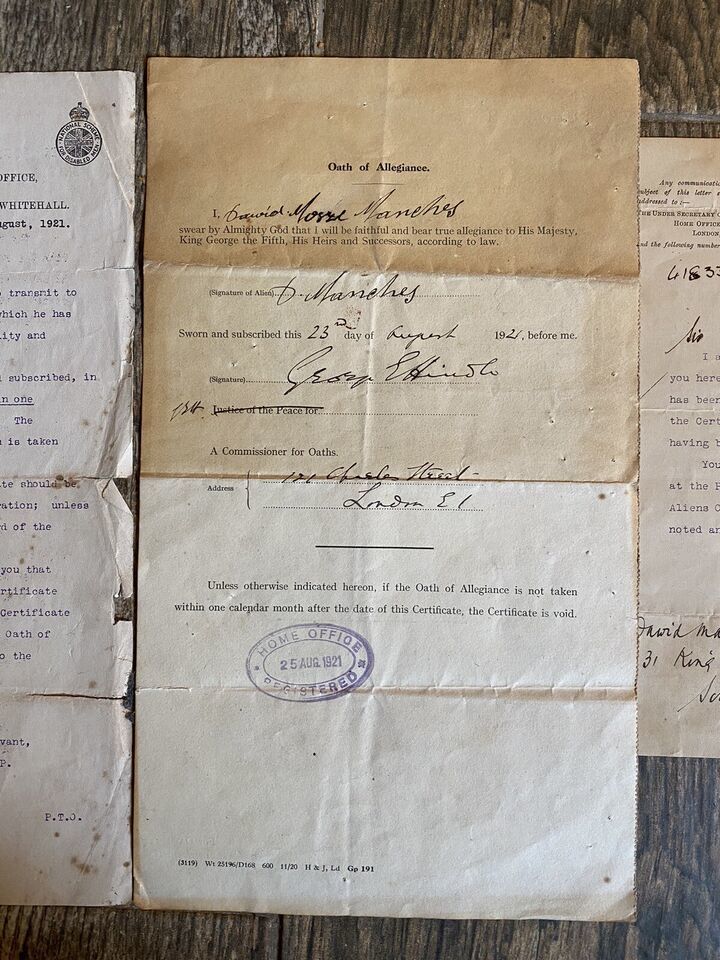 NATIONAL SCHEME
FOR DISABLED MEN
OFFICE,
WHITEHALL.
August, 1921.
transmit to
which he has
lity and
subscribed, in
in one
The
is taken
te should be
ration; unless
d of the
you that
rtificate
Certificate
Oath of
the
vant,
P.
P.T.O.
Oath of Allegiance.
I, David Manches
swear by Almighty God that I will be faithful and bear true allegiance to His Majesty,
King George the Fifth, His Heirs and Successors, according to law.
(Signature of Alien) D Manches
Sworn and subscribed this 23rd day of August 1921, before me.
(Signature) George E Hindle
Justice of the Peace for
A Commissioner for Oaths.
Address 121 Charles Street
London E1
Unless otherwise indicated hereon, if the Oath of Allegiance is not taken
within one calendar month after the date of this Certificate, the Certificate is void.
HOME OFFICE
25 AUG. 1921
REGISTERED
(3119) Wt 25196/D168 600 11/20 H & J, Ld Gp 191
Any communication
subject of this letter
addressed to :—
THE UNDER SECRETARY
HOME OFFICE
LONDON
and the following number
4183
Sir
I a
you here
has been
the Cert
having b
You
at the P
Aliens O
noted an
David Ma
31 King